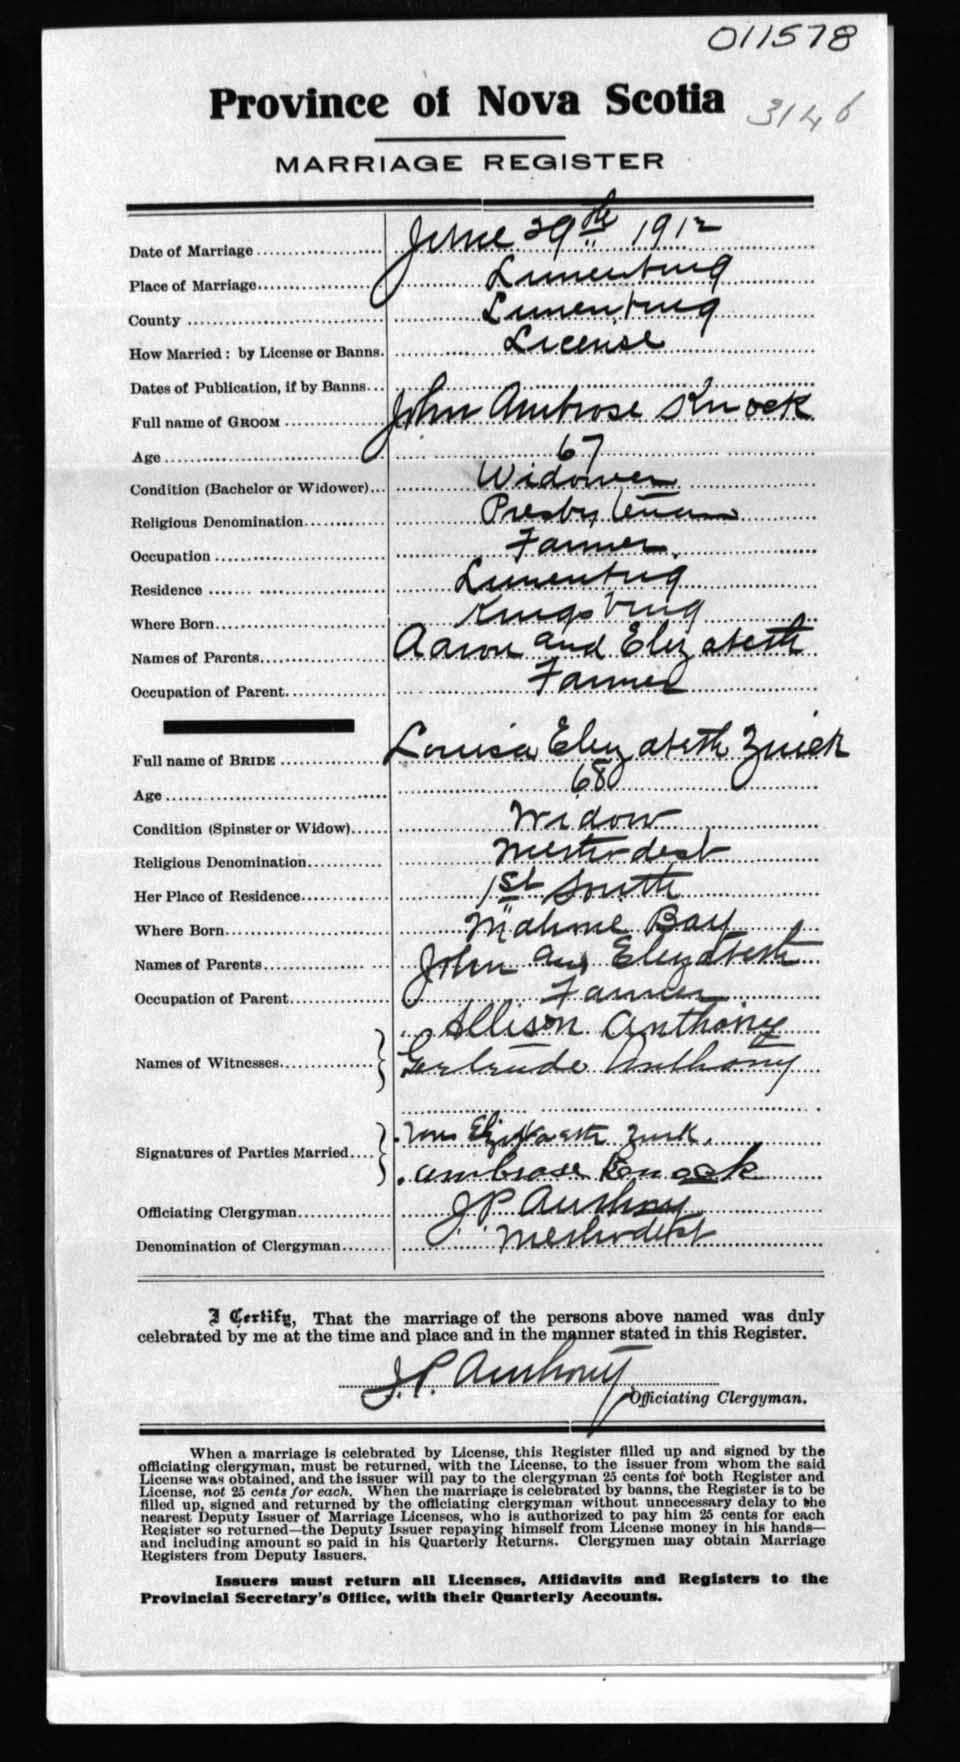 011578
Province of Nova Scotia 3146
MARRIAGE REGISTER
Date of Marriage June 29th 1912
Place of Marriage Lunenburg
County Lunenburg
How Married: by License or Banns. License
Dates of Publication, if by Banns
Full name of GROOM John Ambrose Knock
Age 67
Condition (Bachelor or Widower) Widower
Religious Denomination Presbyterian
Occupation Farmer
Residence Lunenburg
Where Born Kingsburg
Names of Parents Aaron and Elizabeth
Occupation of Parent Farmer
Full name of BRIDE Louisa Elizabeth Zwick
Age 68
Condition (Spinster or Widow) Widow
Religious Denomination Methodist
Her Place of Residence 1st South
Where Born Mahone Bay
Names of Parents John and Elizabeth
Occupation of Parent Farmer
Allison Anthony
Names of Witnesses Gertrude Anthony
Elizabeth Zwick
Signatures of Parties Married
Ambrose Knock
Officiating Clergyman J P Anthony
Denomination of Clergyman Methodist
I Certify, That the marriage of the persons above named was duly
celebrated by me at the time and place and in the manner stated in this Register.
J. P. Anthony
Officiating Clergyman.
When a marriage is celebrated by License, this Register filled up and signed by the
officiating clergyman, must be returned, with the License, to the issuer from whom the said
License was obtained, and the issuer will pay to the clergyman 25 cents for both Register and
License, not 25 cents for each. When the marriage is celebrated by banns, the Register is to be
filled up, signed and returned by the officiating clergyman without unnecessary delay to the
nearest Deputy Issuer of Marriage Licenses, who is authorized to pay him 25 cents for each
Register so returned—the Deputy Issuer repaying himself from License money in his hands—
and including amount so paid in his Quarterly Returns. Clergymen may obtain Marriage
Registers from Deputy Issuers.
Issuers must return all Licenses, Affidavits and Registers to the
Provincial Secretary's Office, with their Quarterly Accounts.